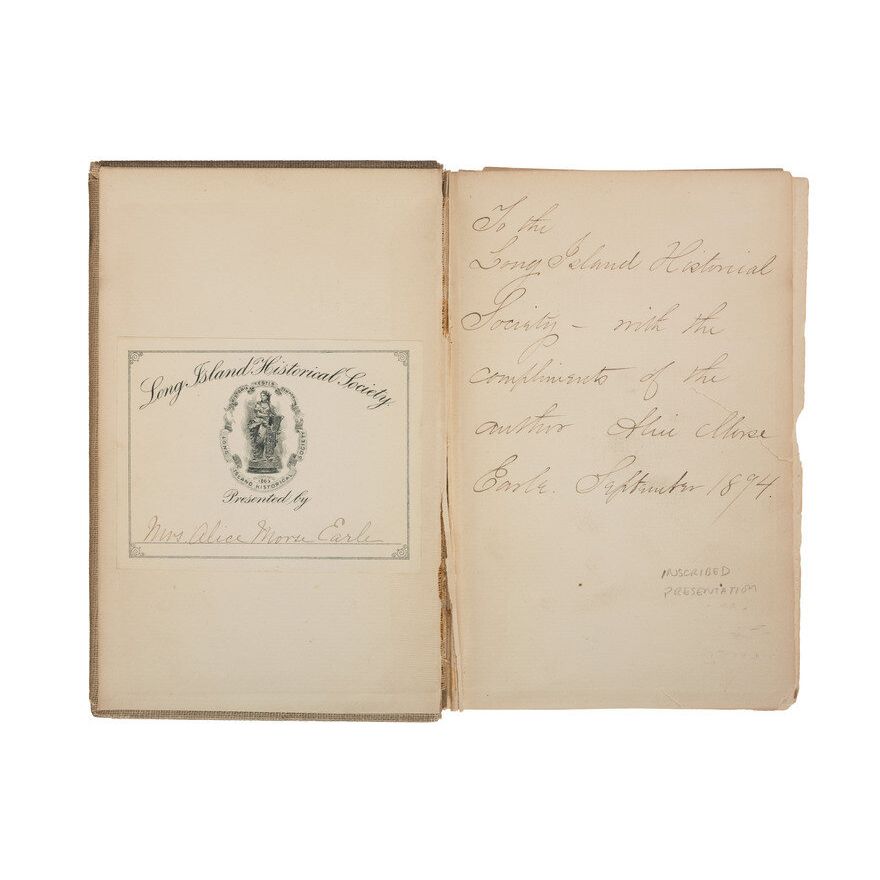 Long Island Historical Society.
LONG ISLAND HISTORICAL SOCIETY
1863
Presented by
Mrs. Alice Morse Earle
To the
Long Island Historical
Society – with the
compliments of the
author Alice Morse
Earle. September 1894.
INSCRIBED
PRESENTATION